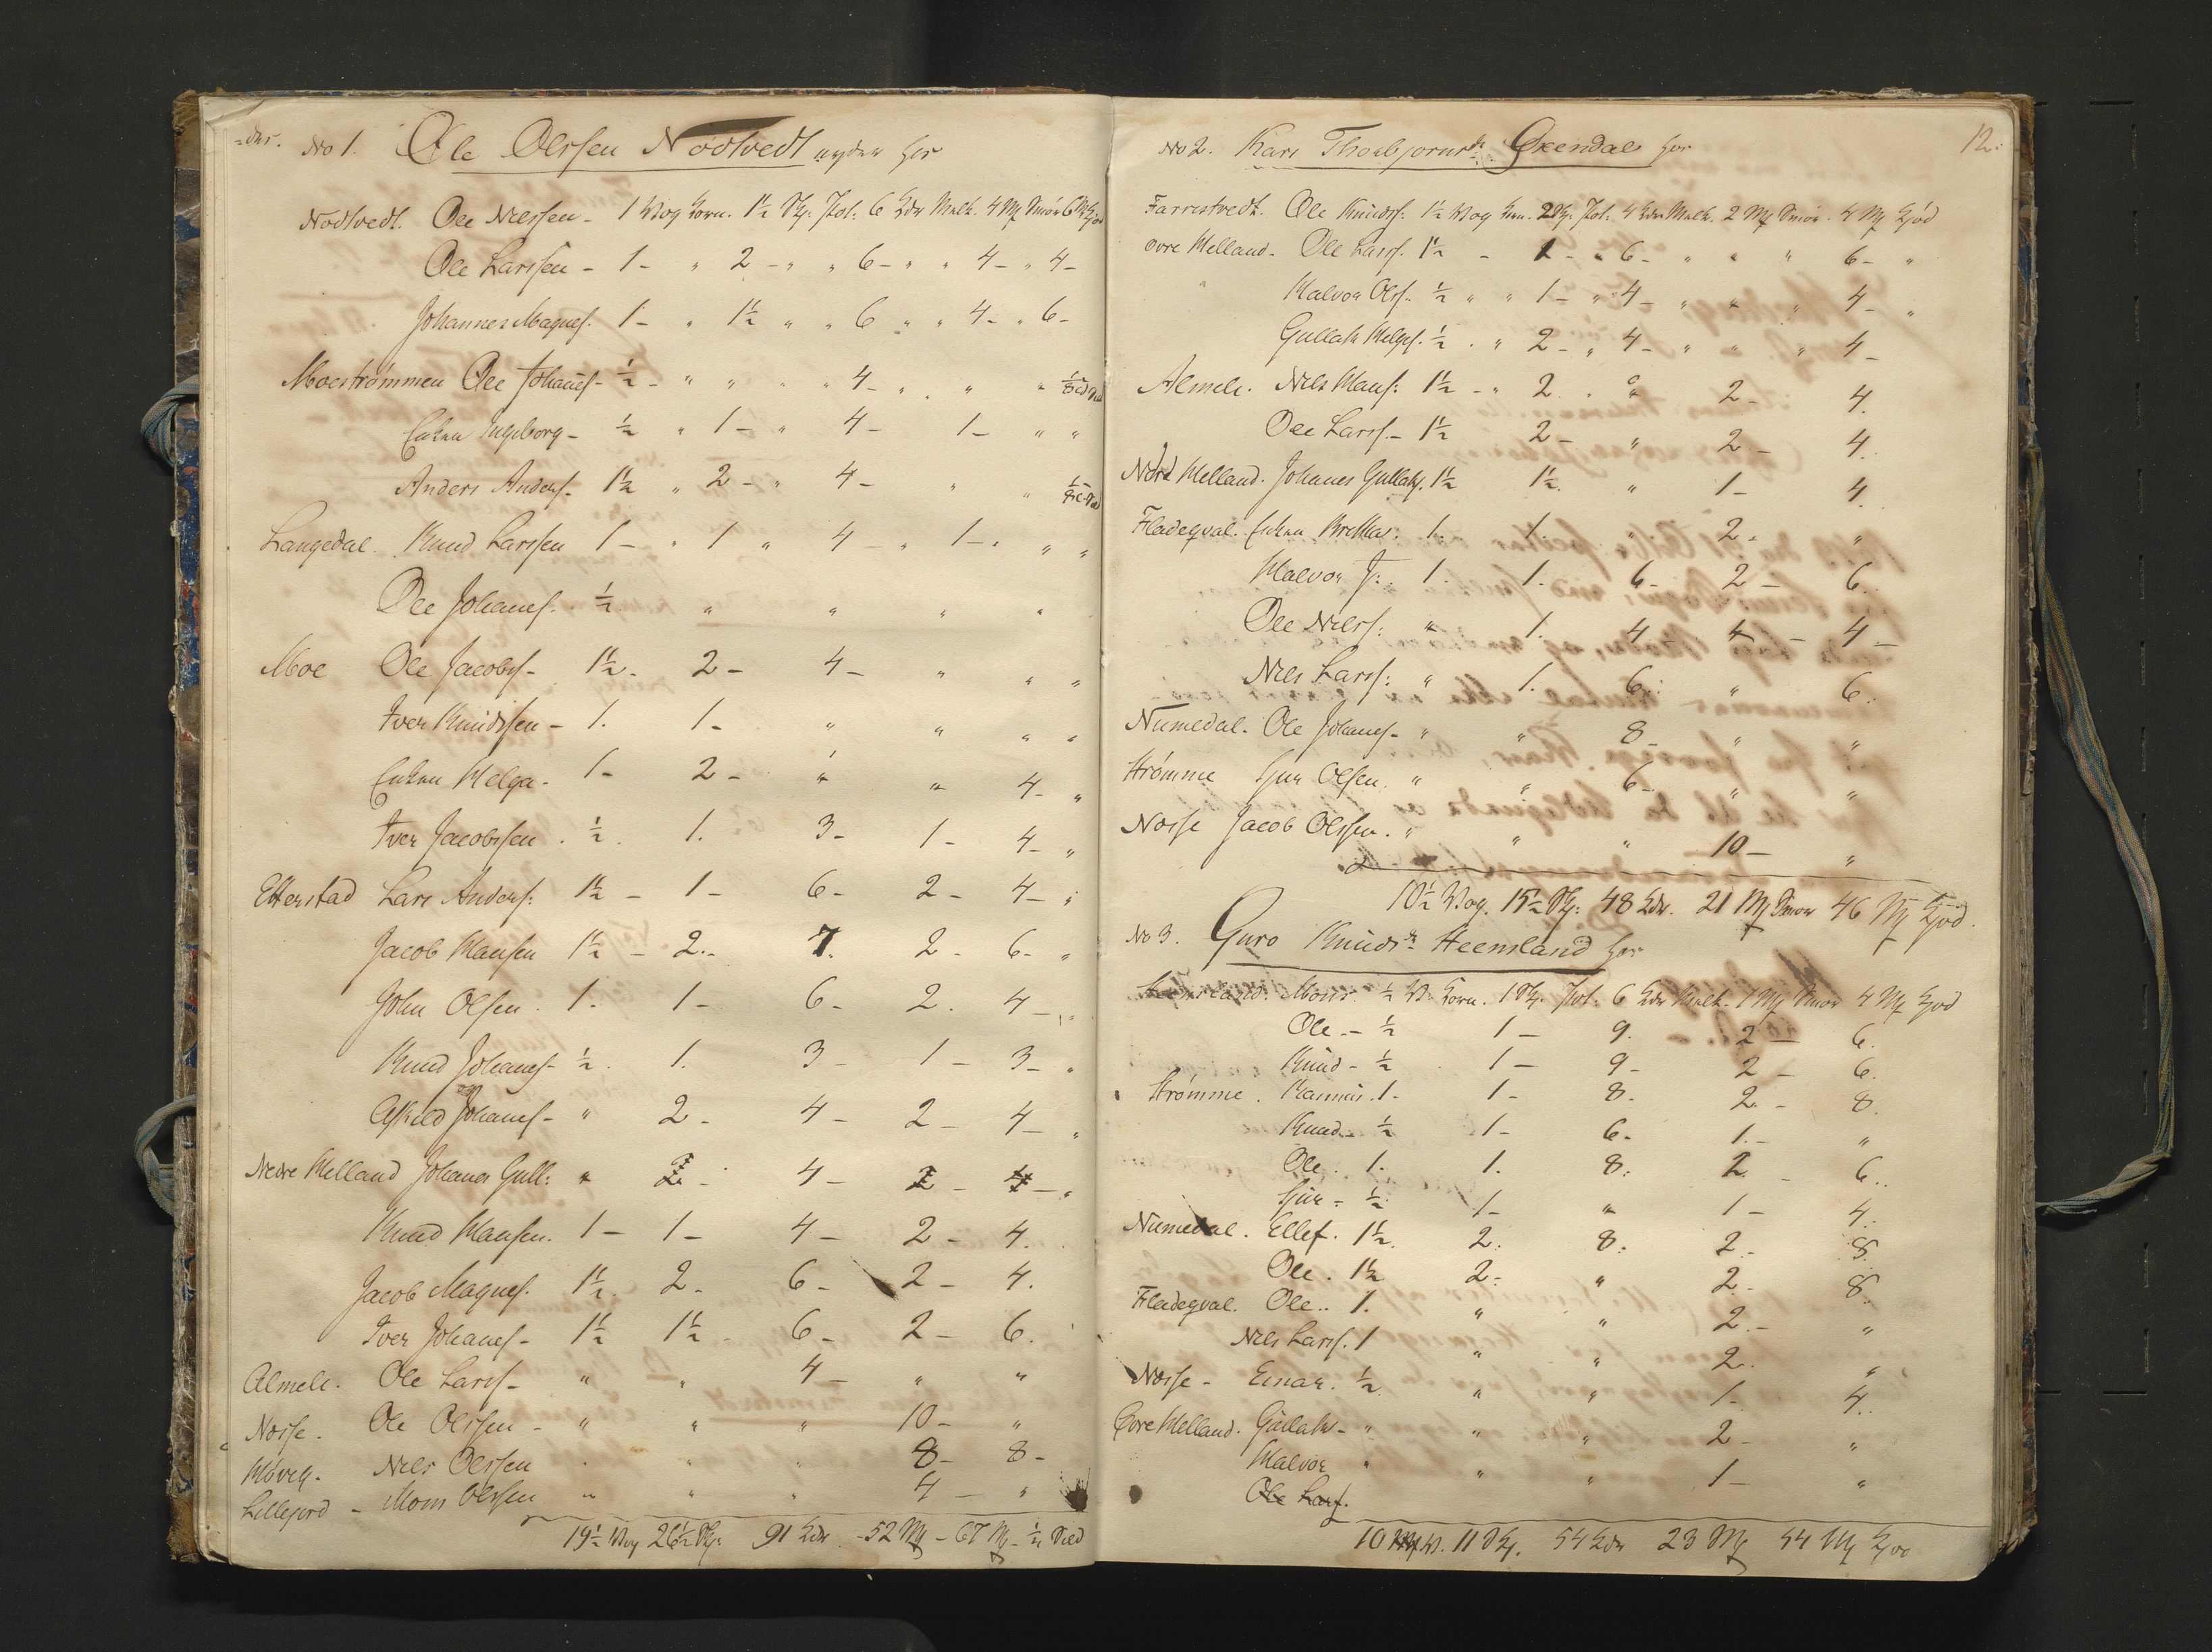 =der. No 1. Ole Olssen Nodtvedt nyder hos
Nodtvedt. Ole Nilssen - 1 Vog Korn. 1½ Skp: Pot: 6 Kdr Melk. 4 Mk Smör 6 Mk Kjöd
Ole Larssen - 1 - " 2 - " " 6 - " " 4 - " 4 -
Johannes Magnes. 1 - " 1½ " " 6 " " 4 - " 6 -
Moeströmmen Ole Johanes - ½ - " " " " 4 - " " " ½
Enken Ingeborg - ½ " 1 - " 4 - 1 - " "
Anders Anders. 1½ " 2 - " 4 - " "
Langedal. Knud Larssen 1 - " 1 " 4 - " 1 - " " "
Ole Johanes. ½ " " " "
Moe Ole Jacobs - 1½ - 2 - 4 - " " "
Iver Knudssen - 1. 1 - " " " "
Enken Helga - 1 - 2 - " " 4 - "
Iver Jacobssen. ½. 1. 3 - 1 - 4 - "
Etterstad Lars Anders: 1½ - 1 - 6 - 2 - 4 - "
Jacob Hansen 1½ - 2 - 7. 2 - 6 - "
John Olsen. 1. 1 - 6 - 2. 4 - "
Knud Johanes - ½. 1. 3 - 1 - 3 - "
Askild Johanes - " 2 - 4 - 2 - 4 - "
Nedre Helland Johanes Gull: " 2 - 4 - 2 - 4 - "
Knud Hansen. 1 - 1 - 4 - 2 - 4.
Jacob Magnes. 1½. 2 - 6 - 2 - 4.
Iver Johanes - 1½ 1½ - 6 - 2 - 6.
Almeli. Ole Larss - " " 4 - " "
Nosse. Ole Olssen - " " " 10 - "
Höveg. Nils Olssen " " " 8 - 8 -
Lillejord - Mons Olssen " " " 4 - "
19½ Vog 26½ Skp: 91 Kdr. - 52 Mk - 67 Mk - ½
12.
No 2. Kari Thorbjornsdr: Öxendal hos
Farrestvedt. Ole Knudss: 1½ Vog Korn. 2 Skp: Pot: 4 Kdr Melk. 2 Mk Smör. 4 Mk Kjöd
övre Helland. Ole Larss. 1½ - 1 - " 6 - " " " 6 - "
Halvor Olss. ½ " " 1 - " 4 - " " " 4 - "
Gullak Helges. ½ . " 2 - " 4 - " " " 4 -
Almeli. Nils Hans: 1½ - " 2. " " 2 - 4.
Ole Larss - 1½ 2 - " 2 - 4.
Nord Helland. Johanes Gullaks. 1½ 1½. " 1 - 4.
Fladeqval. Enken Britha: 1. 1. " 2 - "
Halvor J: 1. 1. 6 - 2 - 6.
Ole Nilss: " 1. 4 4 - 4 -
Nils Larss: " 1. 6. " 6.
Numedal. Ole Johanes - " " 8 - " "
Strömme Sjur Olsen. " " 6 - " "
Nosse Jacob Olssen. " " " 10 - "
10½ Vog. 15½ Skp: 48 Kdr. 21 Mk Smör 46 Mk Kjöd.
No 3. Guro Knudsdr Heemsland hos
Mons. ½ V. Korn. 1 Skp. Pot: 6 Kdr Melk. 1 Mk Smör 4 Mk Kjöd
Ole. - ½ 1 - 9. 2 - 6.
Knud - ½ 1 - 9 - 2 - 6.
Strömme. Rasmus. 1 - 1 - 8. 2 - 8.
Knud - ½ 1 - 6 - 1. - "
Ole. 1. 1. 8: 2 - 6.
Sjur - ½ 1 - " 1 - 4.
Numedal. Ellef. 1½. 2: 8: 2 - 8.
Ole. 1½ 2 - " 2 - 8.
Fladeqval. Ole.. 1. " " 2. - "
Nils Larss. 1 " " 2. "
Nosse - Einar. ½. " " 1 - 4.
Övre Helland. Gullak - " " " 2 - "
Halvor " " " 1 - "
Ole Larss.
10 V. 11 Skp. 54 Kdr 23 Mk 54 Mk Kjöd